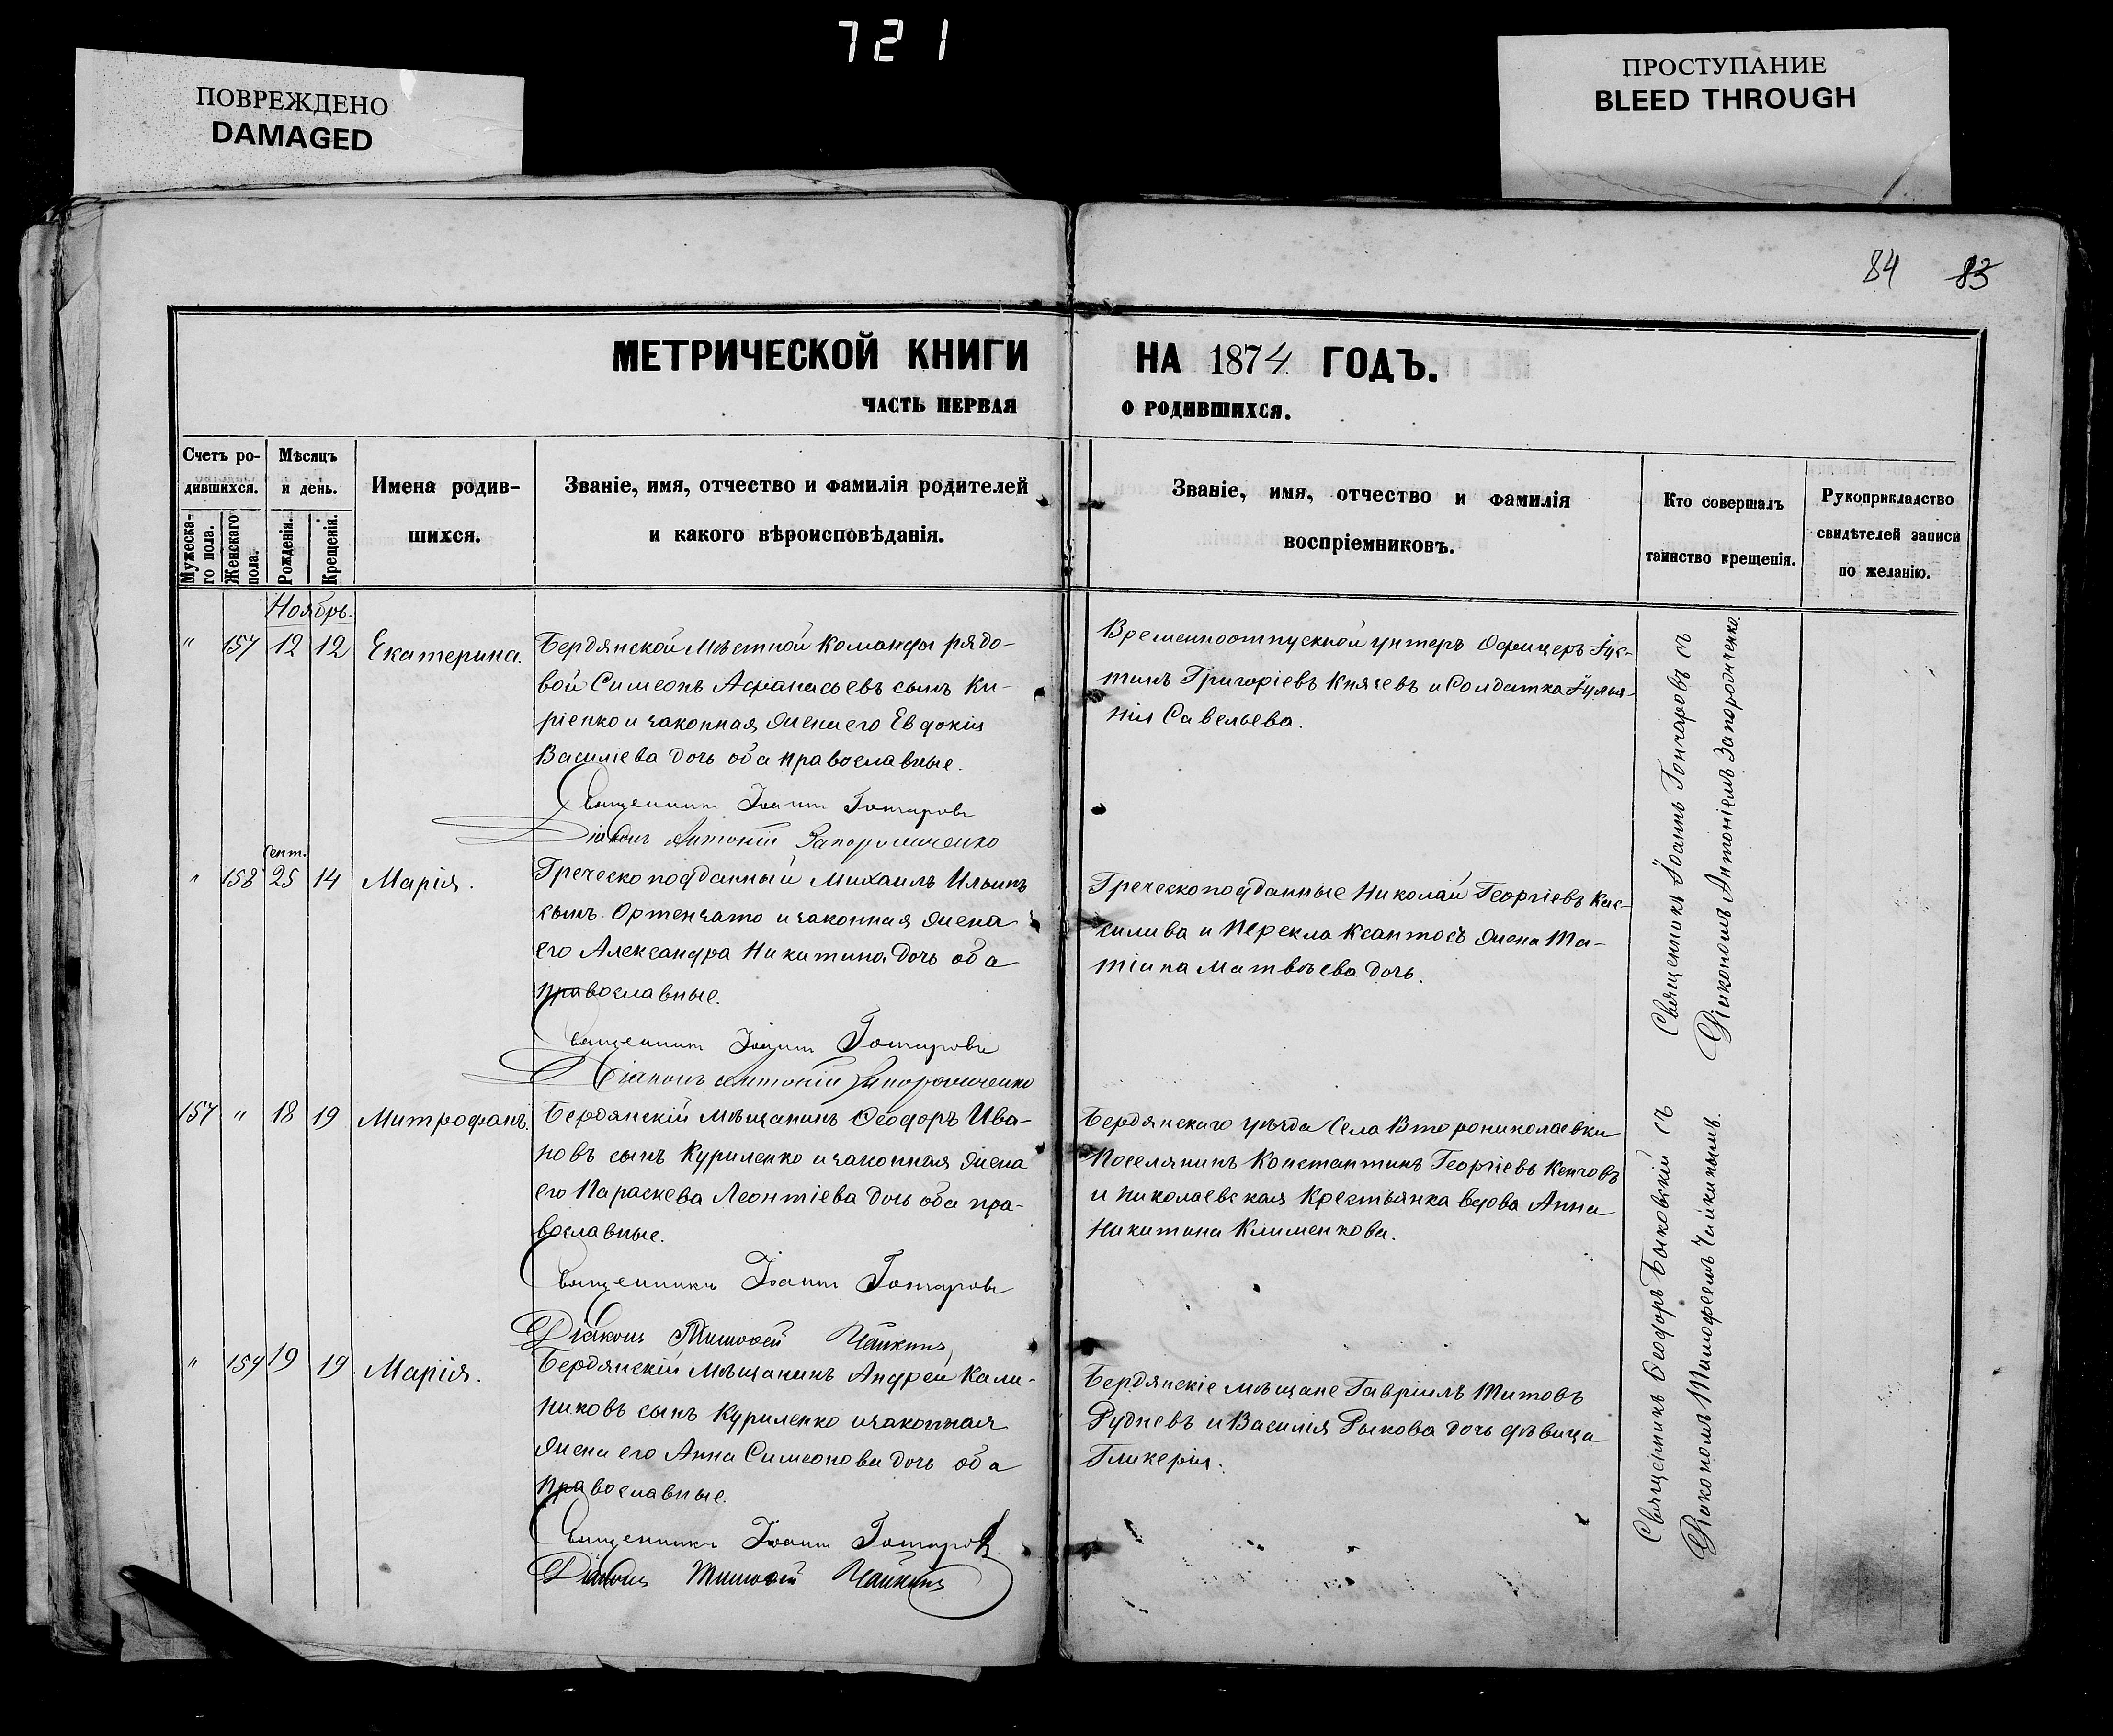 721
ПОВРЕЖДЕНО
DAMAGED
ПРОСТУПАНИЕ
BLEED THROUGH
84 83
МЕТРИЧЕСКОЙ КНИГИ
НА 1874 ГОДЪ.
ЧАСТЬ ПЕРВАЯ
О РОДИВШИХСЯ.
Счетъ ро-
дившихся.
Мужеска-
го пола.
Женскаго
пола.
Мѣсяцъ
и день.
Рожденія.
Крещенія.
Имена родив-
шихся.
Званіе, имя, отчество и фамилія родителей
и какого вѣроисповѣданія.
Званіе, имя, отчество и фамилія
воспріемниковъ.
Кто совершалъ
таинство крещенія.
Рукоприкладство
свидѣтелей записи
по желанію.
Ноябрь.
" 157 12 12 Екатерина.
Бердянской Мѣстной Команды рядо-
вой Симеонъ Афанасьевъ сынъ Ки-
ріенко и законная жена его Евдокія
Василіева дочь оба православные.
Священникъ Іоаннъ Гончаровъ
Діаконъ Антоній Запорожченко
Временноотпускной унтеръ Офицеръ Іус-
тинъ Григоріевъ Князевъ и Солдатка Іулья-
нія Савельева.
Сент.
" 158 25 14 Марія.
Греческоподданный Михаилъ Ильинъ
сынъ Ортензато и законная жена
его Александра Никитина дочь оба
православные.
Священникъ Іоаннъ Гончаровъ
Діаконъ Антоній Запорожченко
Греческоподданные Николай Георгіевъ Кас-
силива и Перекла Ксантосъ жена Та-
тіана Матвѣева дочь.
157 " 18 19 Митрофанъ.
Бердянскій Мѣщанинъ Ѳеодоръ Ива-
новъ сынъ Куриленко и законная жена
его Параскева Леонтіева дочь оба пра-
вославные.
Священникъ Іоаннъ Гончаровъ
Діаконъ Тимофей Чайкинъ
Бердянскаго уѣзда Села Второниколаевки
Поселянинъ Константинъ Георгіевъ Кенчовъ
и Николаевская Крестьянка вдова Анна
Никитина Клименкова.
" 159 19 19 Марія.
Бердянскій Мѣщанинъ Андрей Кали-
никовъ сынъ Куриленко и законная
жена его Анна Симеонова дочь оба
православные.
Священникъ Іоаннъ Гончаровъ
Діаконъ Тимофей Чайкинъ
Бердянскіе мѣщане Гавріилъ Титовъ
Рудневъ и Василія Рыкова дочь дѣвица
Гликерія.
Священникъ Іоаннъ Гончаровъ съ
Діакономъ Антоніемъ Запорожченко.
Священникъ Ѳеодоръ Быковскій съ
Діакономъ Тимофеемъ Чайкинымъ.